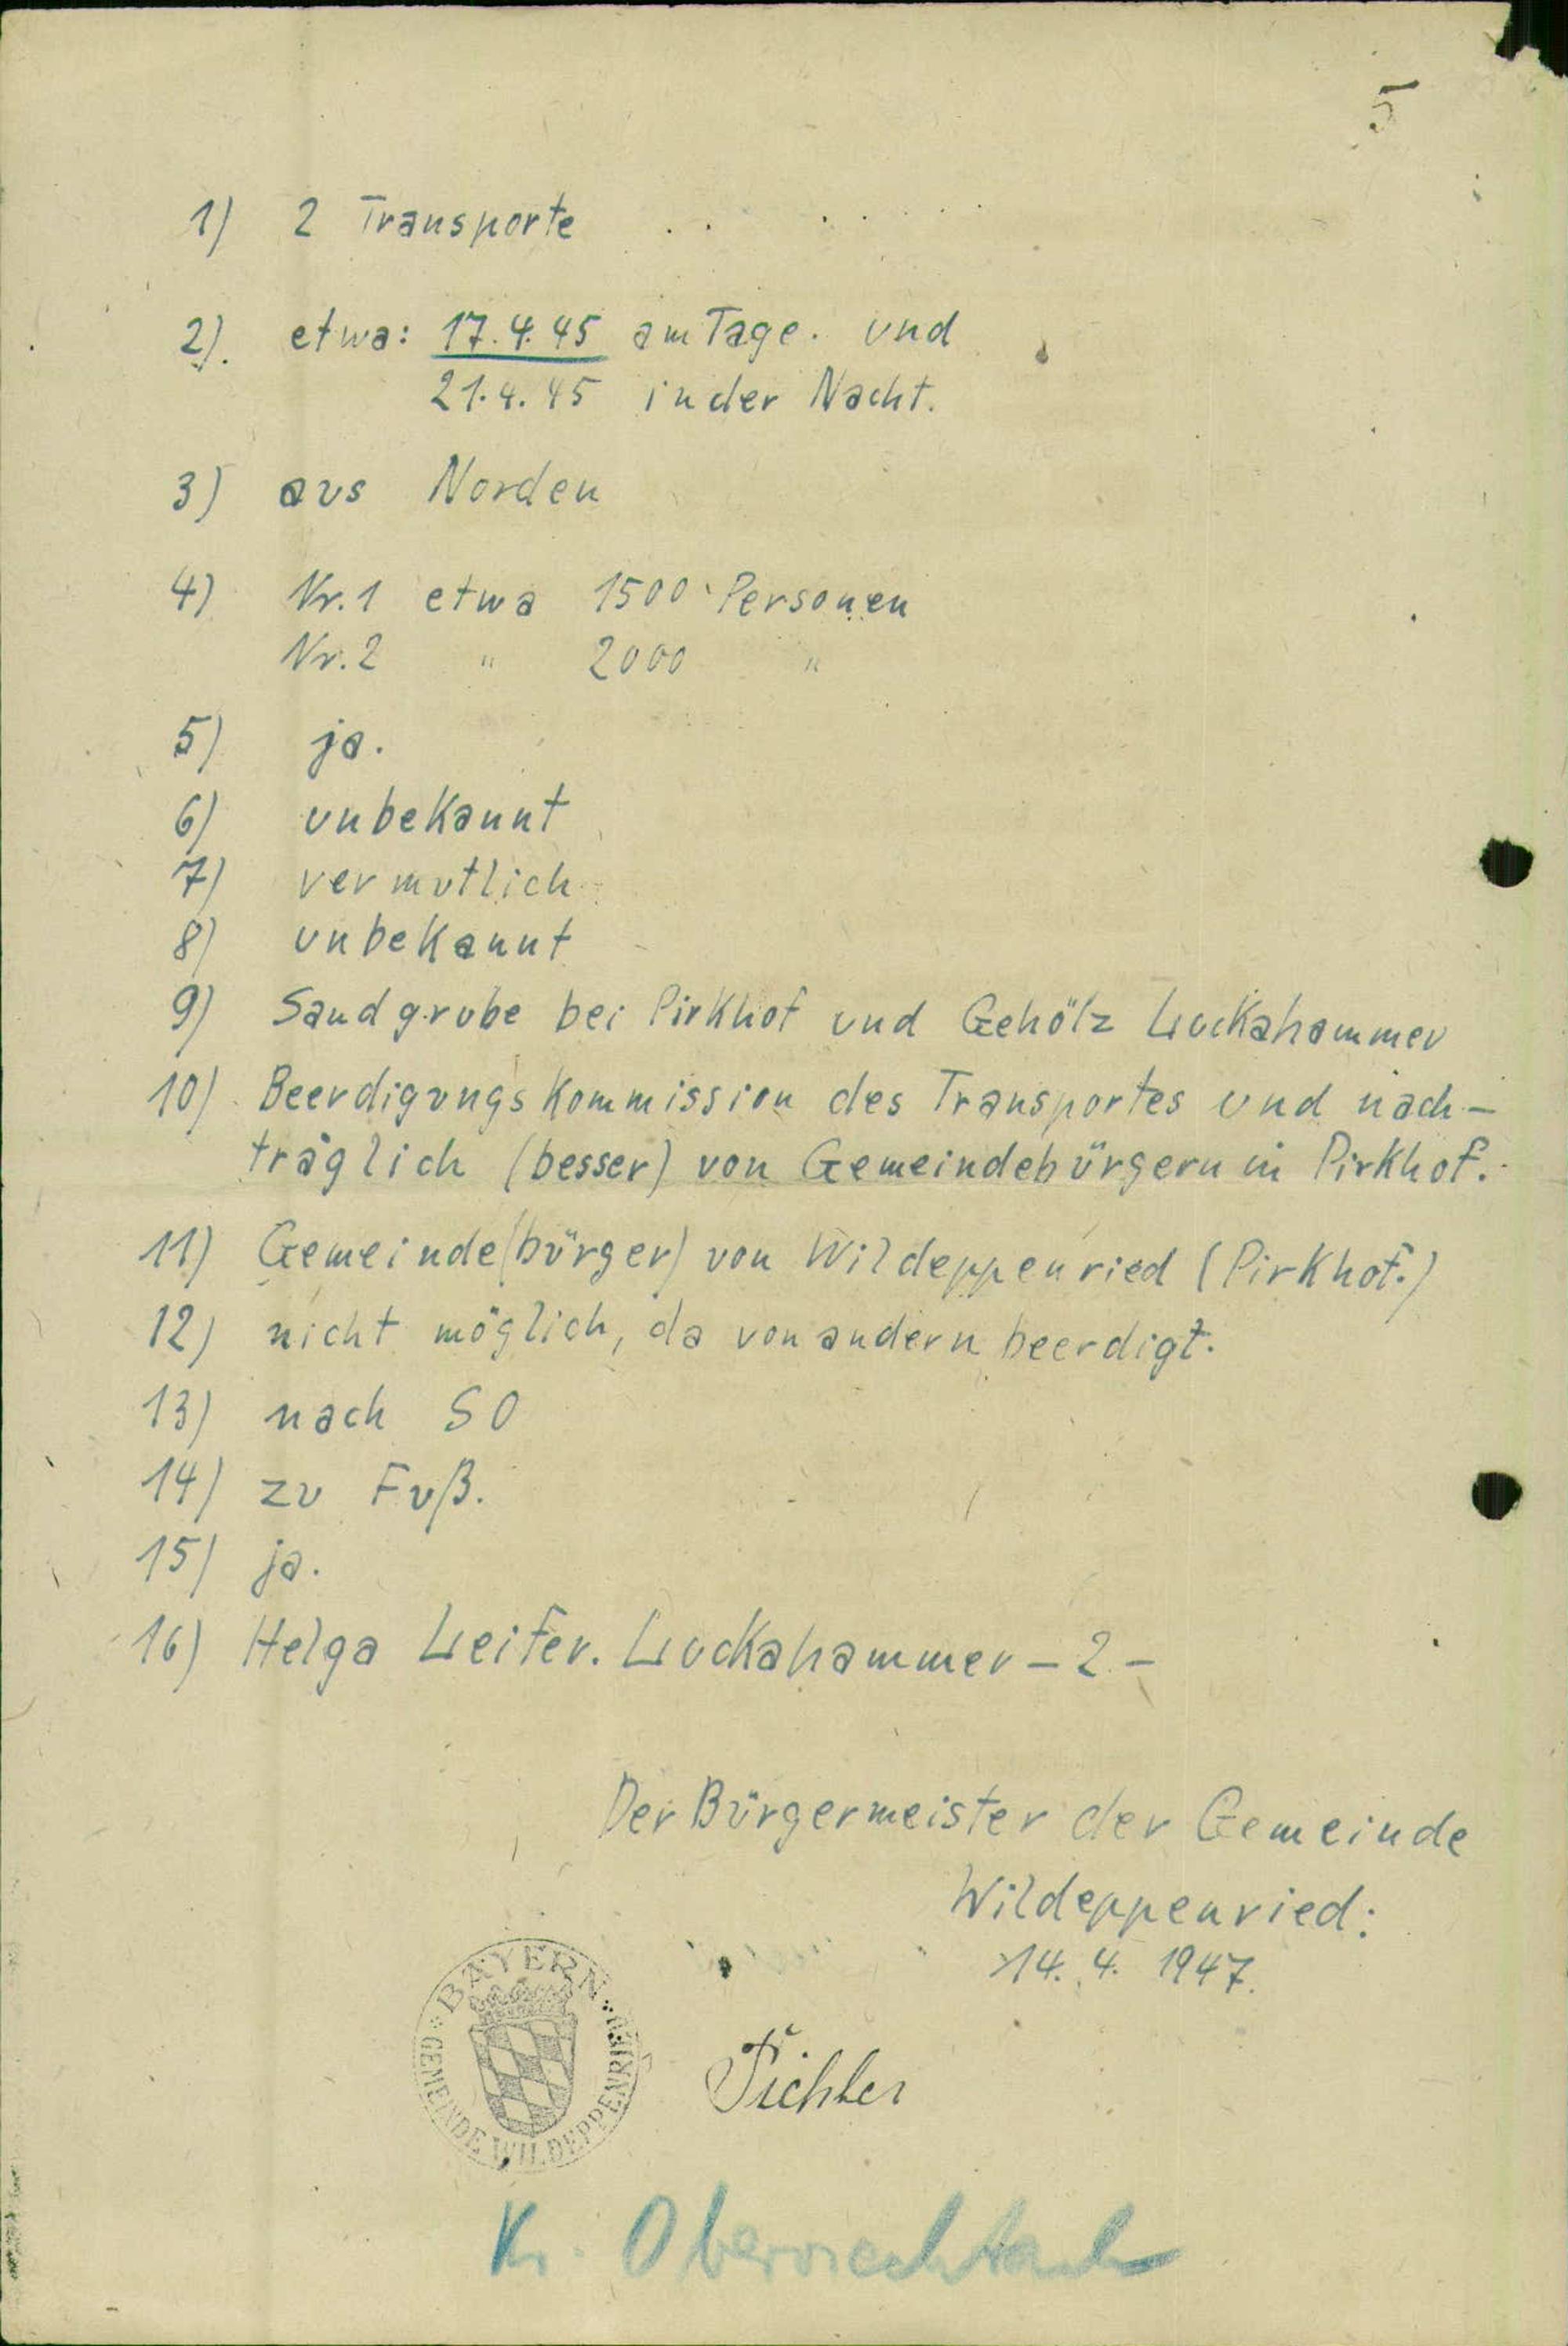 5
1) 2 Transporte
2). etwa: 17.4.45 am Tage. und
21.4.45 in der Nacht.
3) aus Norden
4) Nr. 1 etwa 1500 Personen
Nr. 2 " 2000 "
5) ja.
6) unbekannt
7) vermutlich
8) unbekannt
9) Sandgrube bei Pirkhof und Gehölz Luckahammer
10) Beerdigungskommission des Transportes und nach-
träglich (besser) von Gemeindebürgern in Pirkhof.
11) Gemeinde(bürger) von Wildeppenried (Pirkhof.)
12) nicht möglich, da von andern beerdigt.
13) nach SO
14) zu Fuß.
15) ja.
16) Helga Leifer. Luckahammer - 2 -
Der Bürgermeister der Gemeinde
Wildeppenried:
14. 4. 1947.
BAYERN
GEMEINDE WILDEPPENRIED
Pichler
Kr. Oberviechtach